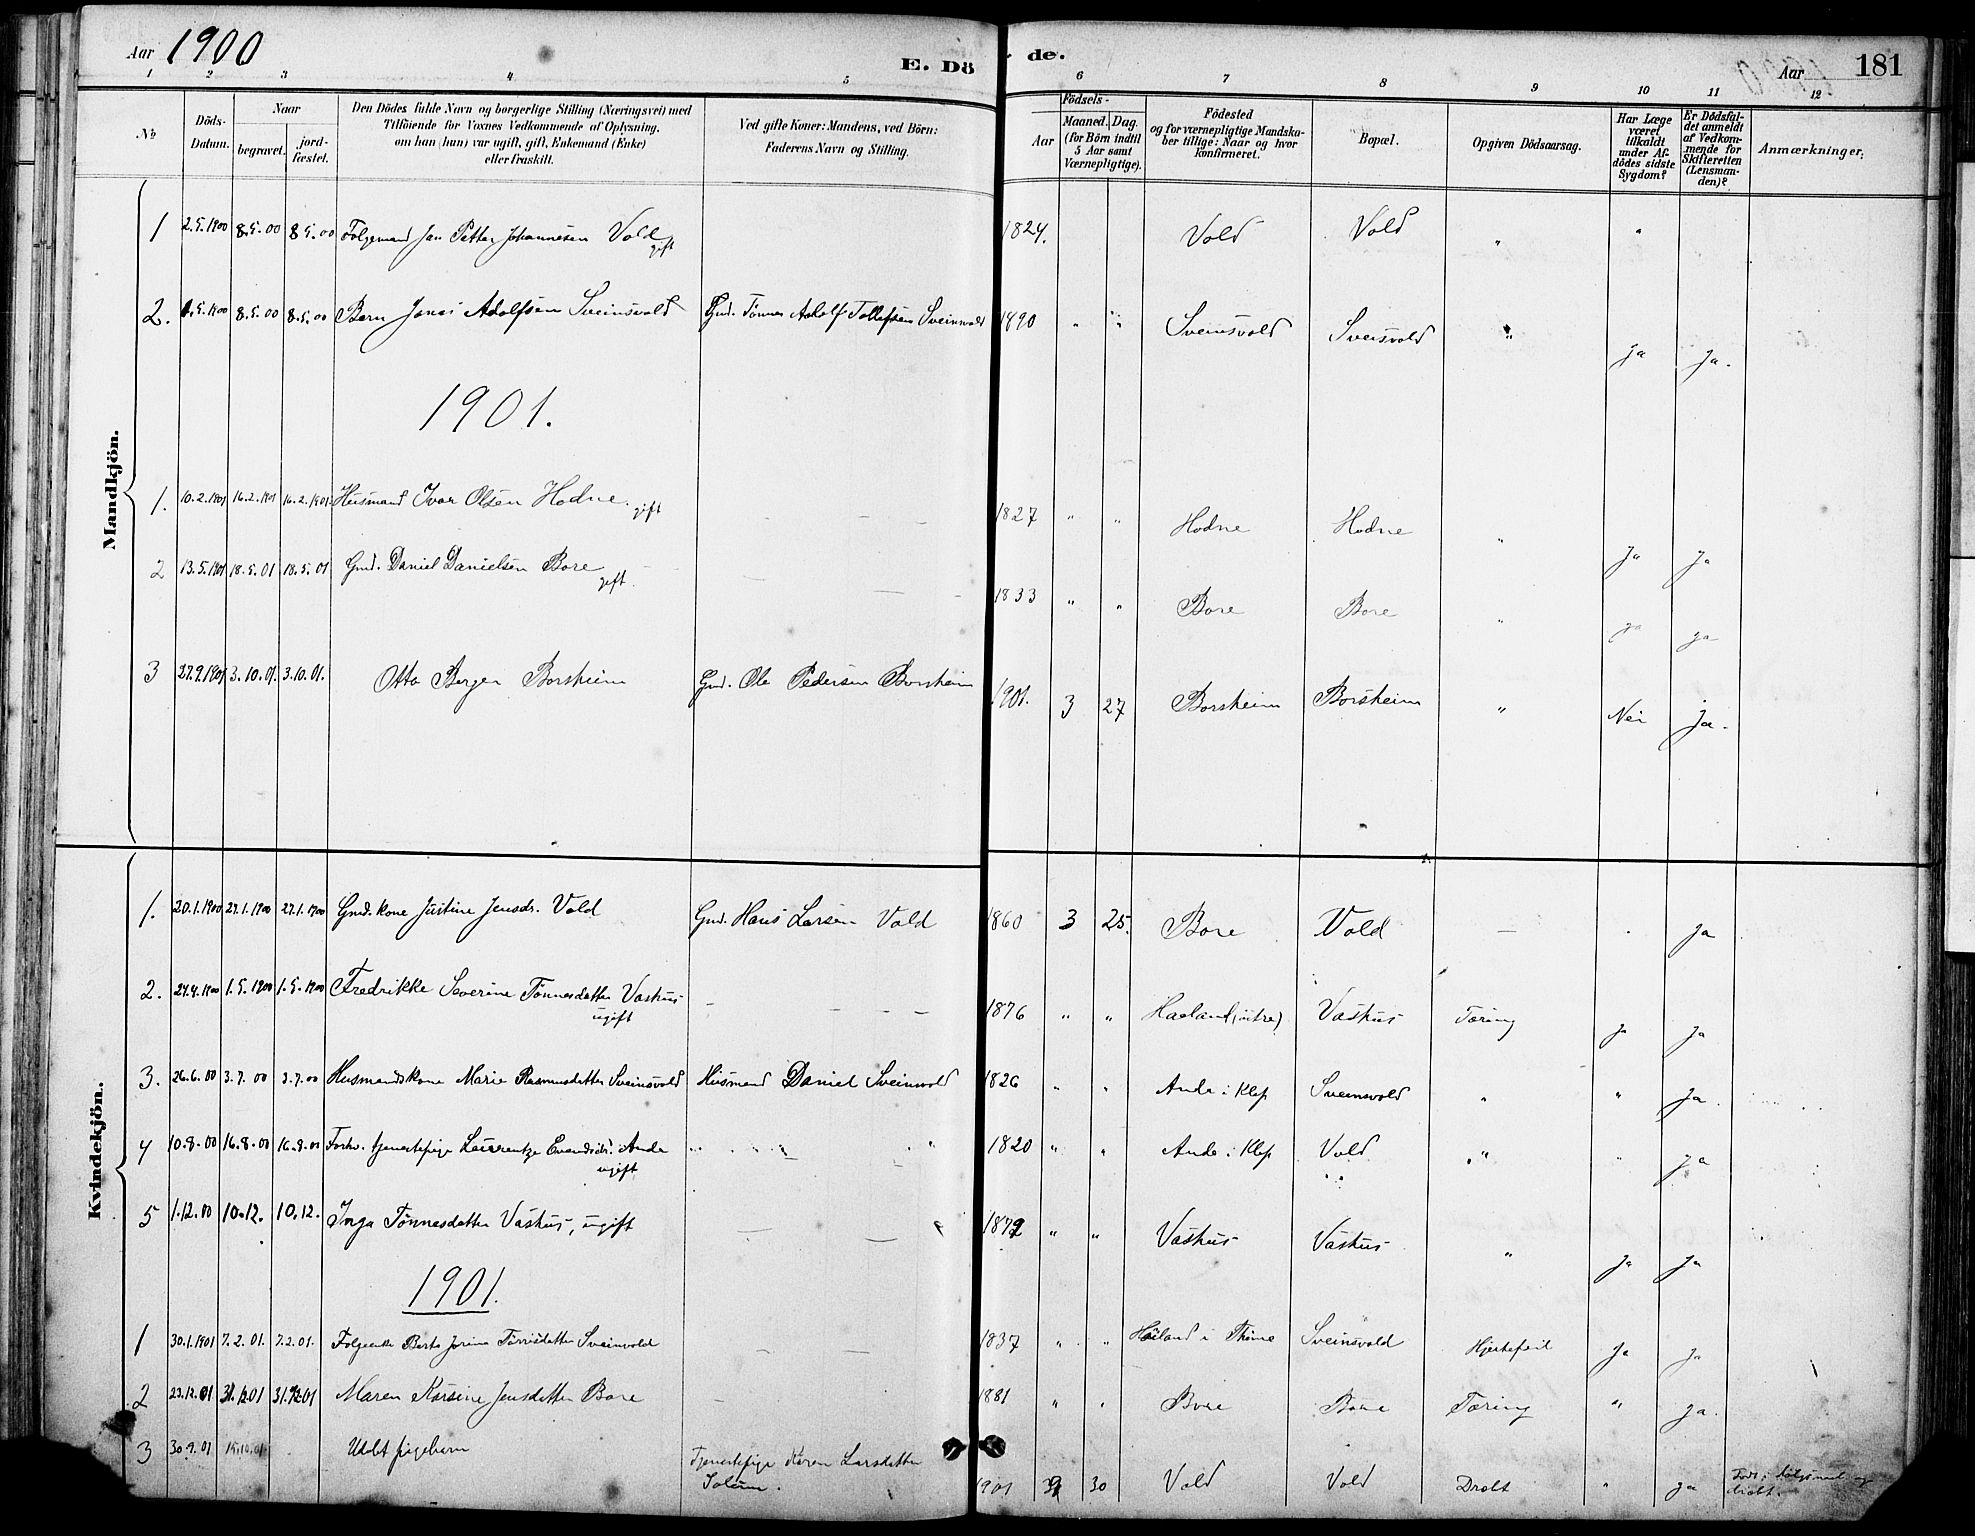 Aar 1900
E. Döde.
Aar
181
1 2 3 4 5 6 7 8 9 10 11 12
No
Döds-Datum.
Naar
begravet.
jord-fæstet.
Den Dödes fulde Navn og borgerlige Stilling (Næringsvei) med
Tilföiende for Voxnes Vedkommende af Oplysning,
om han (hun) var ugift, gift, Enkemand (Enke)
eller fraskilt.
Ved gifte Koner: Mandens, ved Börn:
Faderens Navn og Stilling.
Födsels-
Aar
Maaned. Dag.
(for Börn indtil
5 Aar samt
Værnepligtige).
Födested
og for værnepligtige Mandska-
ber tillige: Naar og hvor
konfirmeret.
Bopæl.
Opgiven Dödsaarsag.
Har Læge
været
tilkaldt
under Af-
dödes sidste
Sygdom?
Er Dödsfal-
det anmeldt
af Vedkom-
mende for
Skifteretten
(Lensman-
den)?
Anmærkninger.
Mandkjön.
1 2.5.1900 8.5.00 8.5.00 Folgemand Jan Petter Johannesen Vold gift 1824. Vold Vold " "
2. 1.5.1900 8.5.00 8.5.00 Barn Jonas Adolfsen Sveinsvold Gmd. Tønnes Adolf Tollefsen Sveinvold 1890 " " Sveinsvold Sveisvold " Ja Ja.
1901.
1. 10.2.1901 16.2.1901 16.2.1901 Husmand Ivar Olsen Hodne. gift 1827 " " Hodne Hodne " Ja Ja
2 13.5.1901 18.5.01 18.5.01 Gmd. Daniel Danielsen Bore gift. 1833 " " Bore Bore " ja ja
3 27.9.1901 3.10.01. 3.10.01. Otto Berger Borsheim Gmd. Ole Pedersen Borsheim 1901. 3 27 Borsheim Borsheim " Nei Ja.
Kvindekjön.
1. 20.1.1900 27.1.1900 27.1.1900 Gmd. kone Justine Jensdr. Vold Gmd. Hans Larsen Vold 1860 3 25. Bore Vold — ja
2. 24.4.1900 1.5.1900 1.5.1900 Fredrikke Severine Tønnesdatter Vashus ugift 1876 " " Haaland (ütre) Vashus Tæring ja Ja
3. 26.6.00 3.7.00 3.7.00 Husmandskone Marie Rasmusdatter Sveinsvold Husmand Daniel Sveinvold 1826 " " Anda i Klep Sveinsvold " " ja.
4 10.8.00 16.8.00 16.8.00 Forhv. tjenestepige Laurentze Evendsdr. Anda ugift 1820 " " Anda i Klep Vold " " ja
5 1.12.00 10.12. 10.12. Inga Tønnesdatter Vashus, ugift 1872 " " Vashus Vashus " ja ja
1901.
1 30.1.1901 7.2.01. 7.2.01. Folgeenke Berta Jorina Tørrisdatter Sveinvold 1837 " " Høiland i Thime Sveinsvold Hjertefeil Ja ja
2 23.12.01 31.12.01 31.12.01 Maren Karsine Jensdatter Bore 1881 " " Bore Bore Tæring " ja.
3 30.9.01 15.10.01 Udøbt pigebarn Tjenestepige Karen Larsdatter Solem. 1901 9 30 Vold Vold Dræbt " ja Født i dølgsmaal og dræbt.